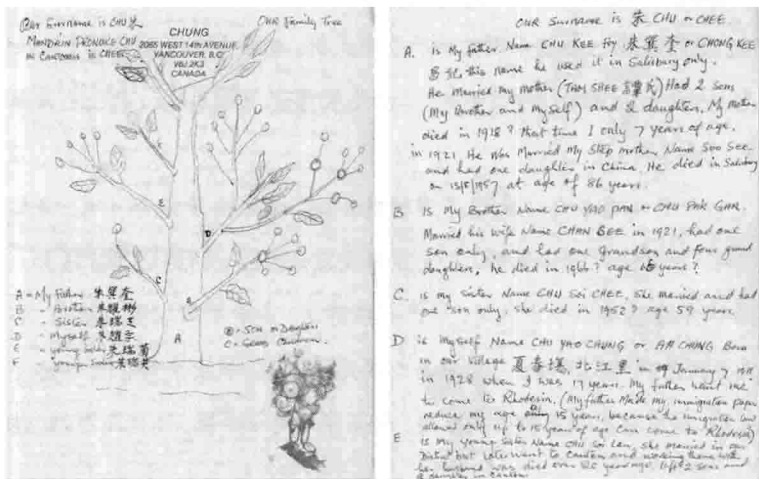 Our Surname is CHU 朱
Our Family Tree
MANDRIN PRONOUCE CHU
IN CANTONESE is CHEE
CHUNG
2065 WEST 14th AVENUE
VANCOUVER, B.C.
V6J 2K3
CANADA
E
D
C
B
A
A = My Father 朱冀奎
B " Brother 朱耀彬
C " Sister 朱瑞芝
D " Myself 朱耀宗
E " young Sister 朱瑞蘭
F " young Sister 朱瑞英
= Son or Daughter
= Grand Children
OUR Surname is 朱 CHU or CHEE.
A. is My father Name CHU KEE 朱冀奎 or CHONG KEE
昌記 this name he used it in Salisbury only.
He Married my mother (THAM SHEE 譚氏) Had 2 sons
(My Brother and Myself) and 2 daughters. My mother
died in 1918? that time I only 7 years of age.
in 1921, He was Married My Step mother Name Soo See
and had one daughter in China. He died in Salisbury
on 1957 at age of 86 years.
B is My Brother Name CHU YAO PAN or CHU PAK GAR.
Married his wife Name CHAN SEE in 1921, had one
son only, and had one Grandson and four grand
daughters, he died in 1966? age years?
C. is my sister Name CHU Soi CHEE, she married and had
one son only, she died in 1952? age 59 years.
D is Myself Name CHU YAO CHUNG or AH CHUNG Born
in our Village in January 7 1911
in 1928 when I was 17 years. My father want me
to come to Rhodesia. (My father Made my immigration paper
reduce my age only 15 years, because the imigration law
allowed only up to 15 years of age can come to Rhodesia)
E is My young Sister Name CHU Soi Lan, she married in our
District but later went to Canton and working there with
her husband was died over 20 years ago, left 2 sons and
2 daughters in Canton